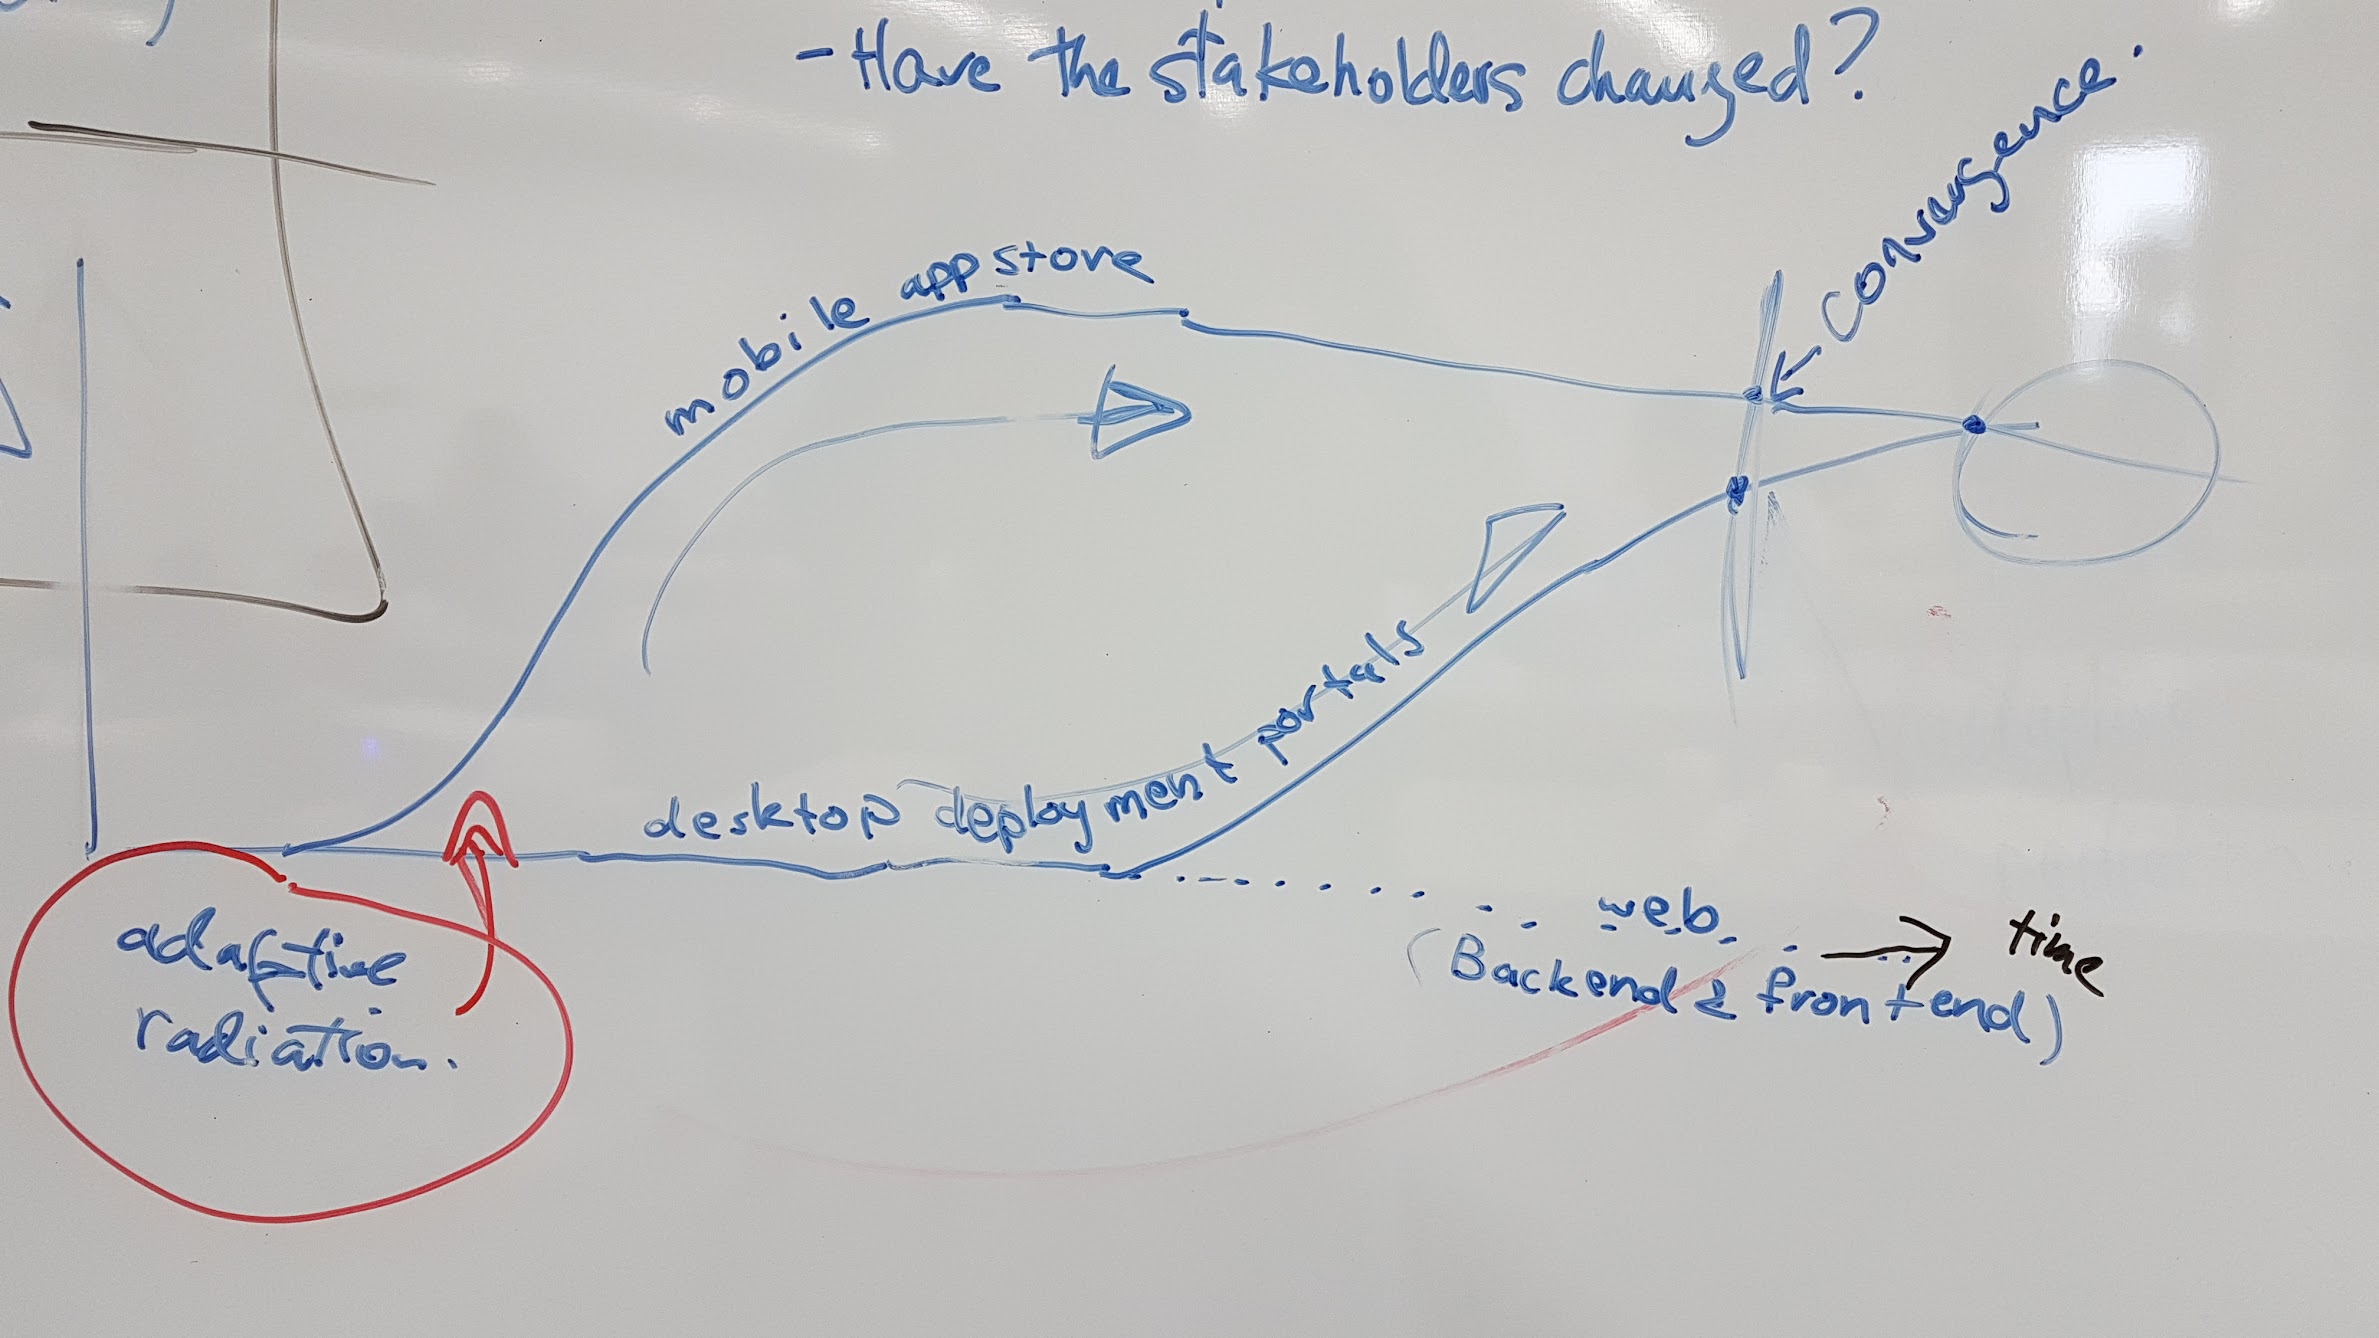 - Have the stakeholders changed?
convergence.
mobile app store
desktop deployment portals
web
(Backend & frontend)
time
adaptive
radiation.